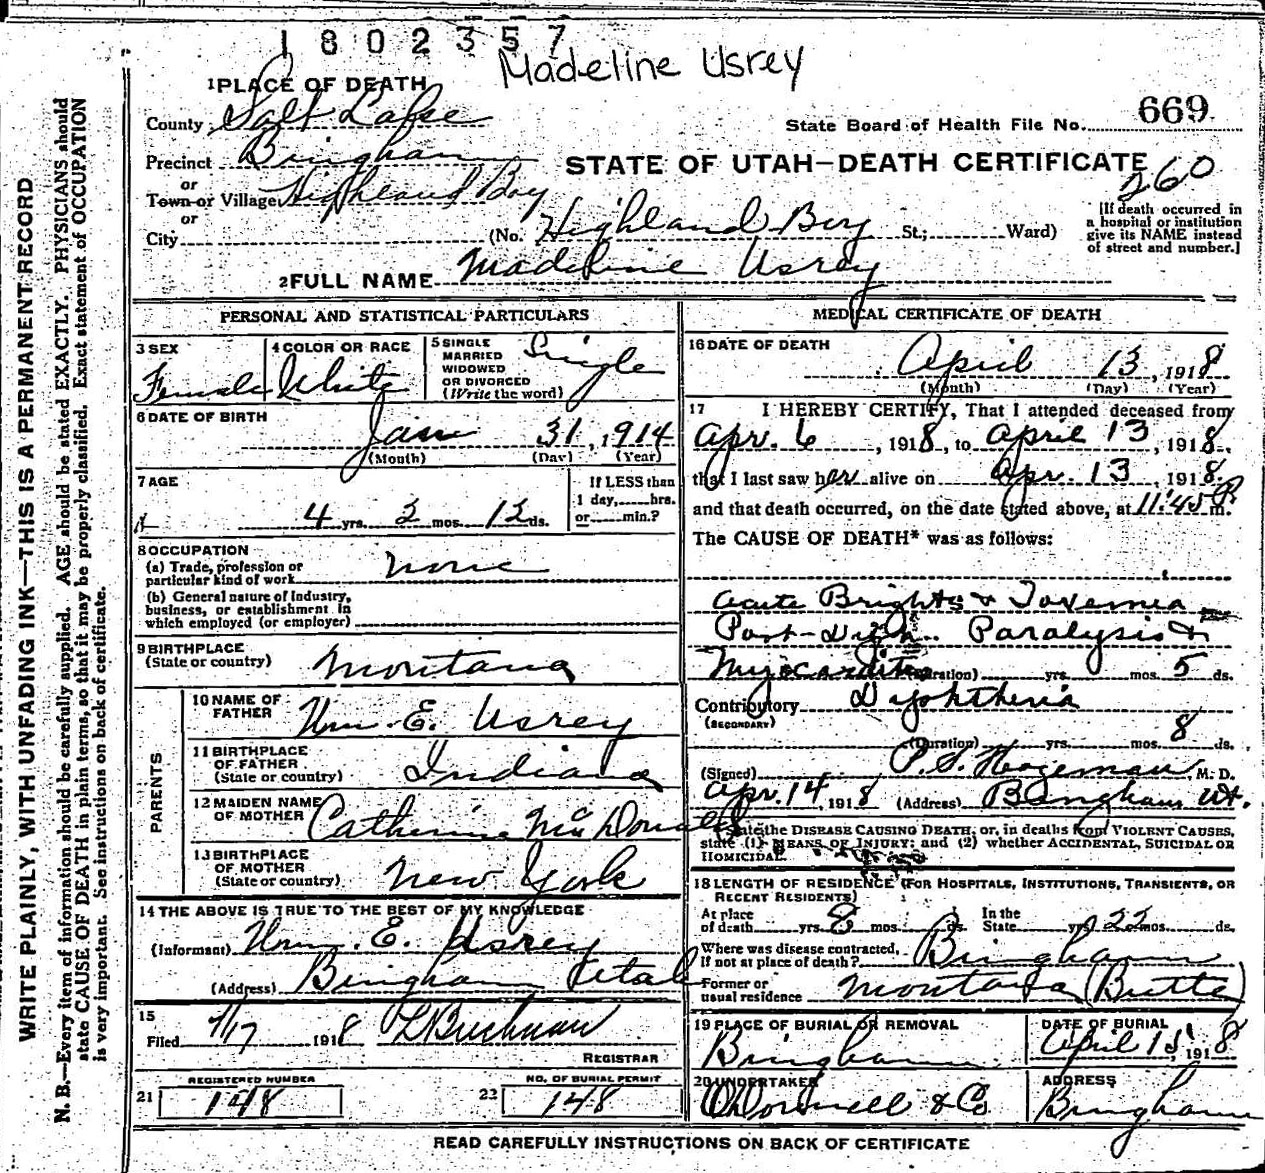 1802357
Madeline Usrey
1 PLACE OF DEATH
County Salt Lake
State Board of Health File No. 669
Precinct Bingham
STATE OF UTAH—DEATH CERTIFICATE
260
or
Town or Village Highland Boy
or
City (No. Highland Boy St.; Ward)
[If death occurred in
a hospital or institution
give its NAME instead
of street and number.]
2 FULL NAME Madeline Usrey
PERSONAL AND STATISTICAL PARTICULARS
3 SEX
Female
4 COLOR OR RACE
White
5 SINGLE
MARRIED
WIDOWED
OR DIVORCED
(Write the word)
Single
6 DATE OF BIRTH
Jan 31, 1914
(Month) (Day) (Year)
7 AGE
4 yrs. 2 mos. 12 ds.
If LESS than
1 day, hrs.
or min.?
8 OCCUPATION
(a) Trade, profession or
particular kind of work none
(b) General nature of Industry,
business, or establishment in
which employed (or employer)
9 BIRTHPLACE
(State or country) Montana
PARENTS
10 NAME OF
FATHER Wm. E. Usrey
11 BIRTHPLACE
OF FATHER
(State or country) Indiana
12 MAIDEN NAME
OF MOTHER Catherine McDonald
13 BIRTHPLACE
OF MOTHER
(State or country) New York
14 THE ABOVE IS TRUE TO THE BEST OF MY KNOWLEDGE
(Informant) Wm. E. Usrey
(Address) Bingham Utah
15
Filed 4/17 1918 L Buchman
REGISTRAR
REGISTERED NUMBER
21 148
NO. OF BURIAL PERMIT
22 148
MEDICAL CERTIFICATE OF DEATH
16 DATE OF DEATH
April 13, 1918
(Month) (Day) (Year)
17 I HEREBY CERTIFY, That I attended deceased from
Apr. 6, 1918, to April 13, 1918,
that I last saw her alive on Apr. 13, 1918
and that death occurred, on the date stated above, at 11:45 P m.
The CAUSE OF DEATH* was as follows:
Acute Brights & Toxemia
Post-Diph. Paralysis &
Myocarditis (Duration) yrs. mos. 5 ds.
Contributory Diphtheria
(SECONDARY)
(Duration) yrs. mos. 8 ds.
(Signed) P.S. Hageman, M. D.
Apr. 14, 1918 (Address) Bingham Ut.
State the DISEASE CAUSING DEATH, or, in deaths from VIOLENT CAUSES,
state (1) MEANS OF INJURY; and (2) whether ACCIDENTAL, SUICIDAL OR
HOMICIDAL.
18 LENGTH OF RESIDENCE (FOR HOSPITALS, INSTITUTIONS, TRANSIENTS, OR
RECENT RESIDENTS)
At place
of death yrs. 8 mos. ds.
In the
State yrs. 22 mos. ds.
Where was disease contracted,
If not at place of death? Bingham
Former or
usual residence Montana (Butte)
19 PLACE OF BURIAL OR REMOVAL
Bingham
DATE OF BURIAL
April 15, 1918
20 UNDERTAKER
O'Donnell & Co
ADDRESS
Bingham
READ CAREFULLY INSTRUCTIONS ON BACK OF CERTIFICATE
WRITE PLAINLY, WITH UNFADING INK—THIS IS A PERMANENT RECORD
N. B.—Every item of information should be carefully supplied. AGE should be stated EXACTLY. PHYSICIANS should
state CAUSE OF DEATH in plain terms, so that it may be properly classified. Exact statement of OCCUPATION
is very important. See instructions on back of certificate.